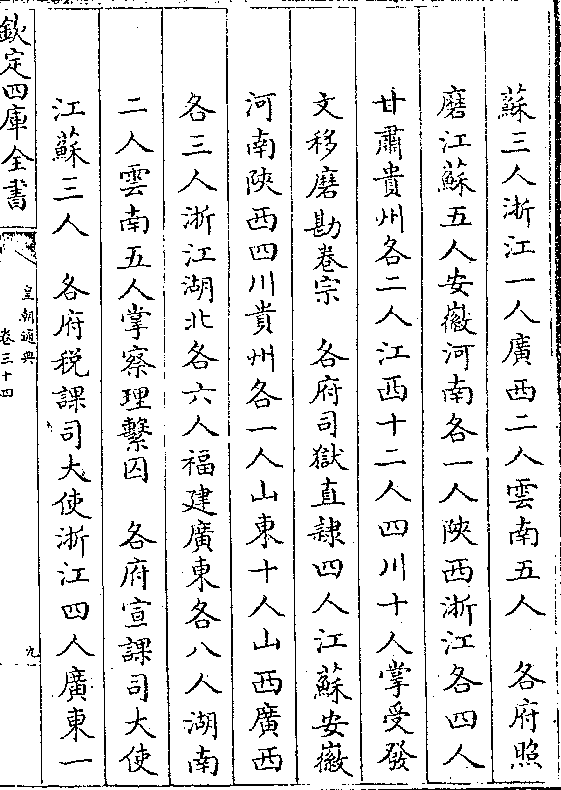 蘇三人浙江一人廣西二人雲南五人　各府照
磨江蘇五人安徽河南各一人陜西浙江各四人
甘肅貴州各二人江西十二人四川十人掌受發
文移磨勘卷宗　各府司獄直隸四人江蘇安徽
河南陜西四川貴州各一人山東十人山西廣西
各三人浙江湖北各六人福建廣東各八人湖南
二人雲南五人掌察理繫囚　各府宣課司大使
江蘇三人　各府稅課司大使浙江四人廣東一
欽定四庫全書
皇朝通典
卷三十四
九